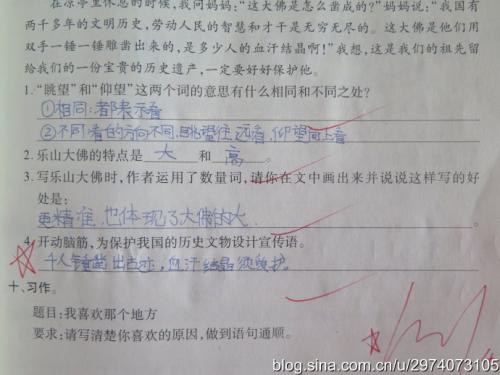 在凉亭里休息的时候,我问妈妈:“这大佛是怎么凿成的?”妈妈说:“我国有
两千多年的文明历史,劳动人民的智慧和才干是无穷无尽的。这大佛是他们用
双手一锤一锤雕凿出来的,是多少人的血汗结晶啊!”我想,这是我们的祖先留
给我们的一份宝贵的历史遗产,一定要好好保护他。
1.“眺望”和“仰望”这两个词的意思有什么相同和不同之处?
①相同:都表示看
②不同看的方向不同,眺望往远看,仰望向上看
2. 乐山大佛的特点是 大 和 高 。
3. 写乐山大佛时,作者运用了数量词,请你在文中画出来并说说这样写的好
处是:
更精准,也体现了大佛的大.
4. 开动脑筋,为保护我国的历史文物设计宣传语。
千人锤凿出古迹,血汗结晶须爱护
十、习作。
题目:我喜欢那个地方
要求:请写清楚你喜欢的原因,做到语句通顺。
blog.sina.com.cn/u/2974073105